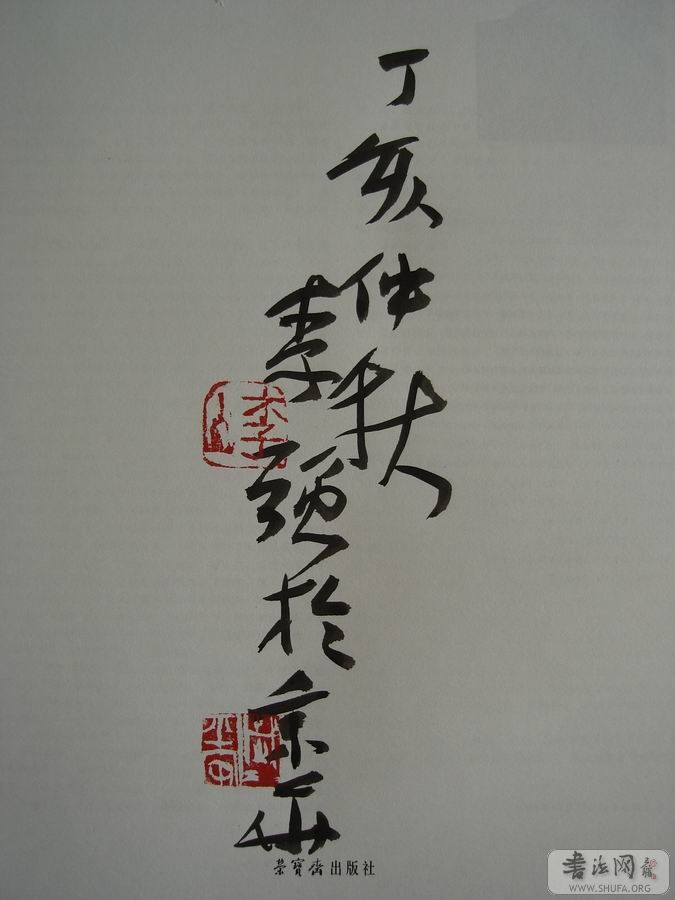 丁亥仲秋
李强於京華
荣宝斋出版社
书法网
WWW.SHUFA.ORG